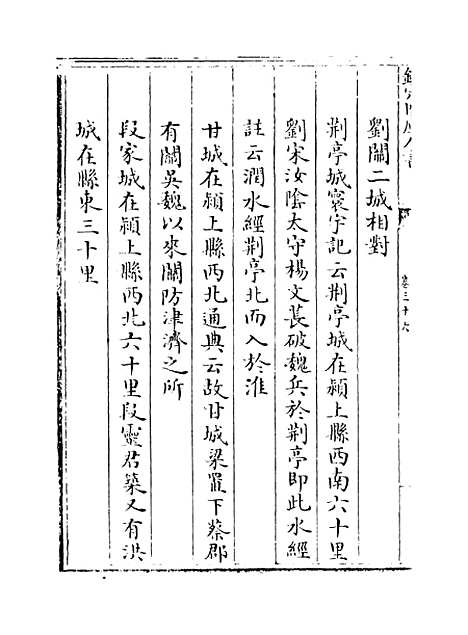 欽定四庫全書
卷三十六
劉闢二城相對
荆亭城寰宇記云荆亭城在潁上縣西南六十里
劉宋汝隂太守楊文萇破魏兵於荆亭即此水經
註云潤水經荆亭北而入於淮
甘城在潁上縣西北通典云故甘城梁置下蔡郡
有關吳魏以來關防津濟之所
段家城在潁上縣西北六十里段靈君築又有洪
城在縣東三十里